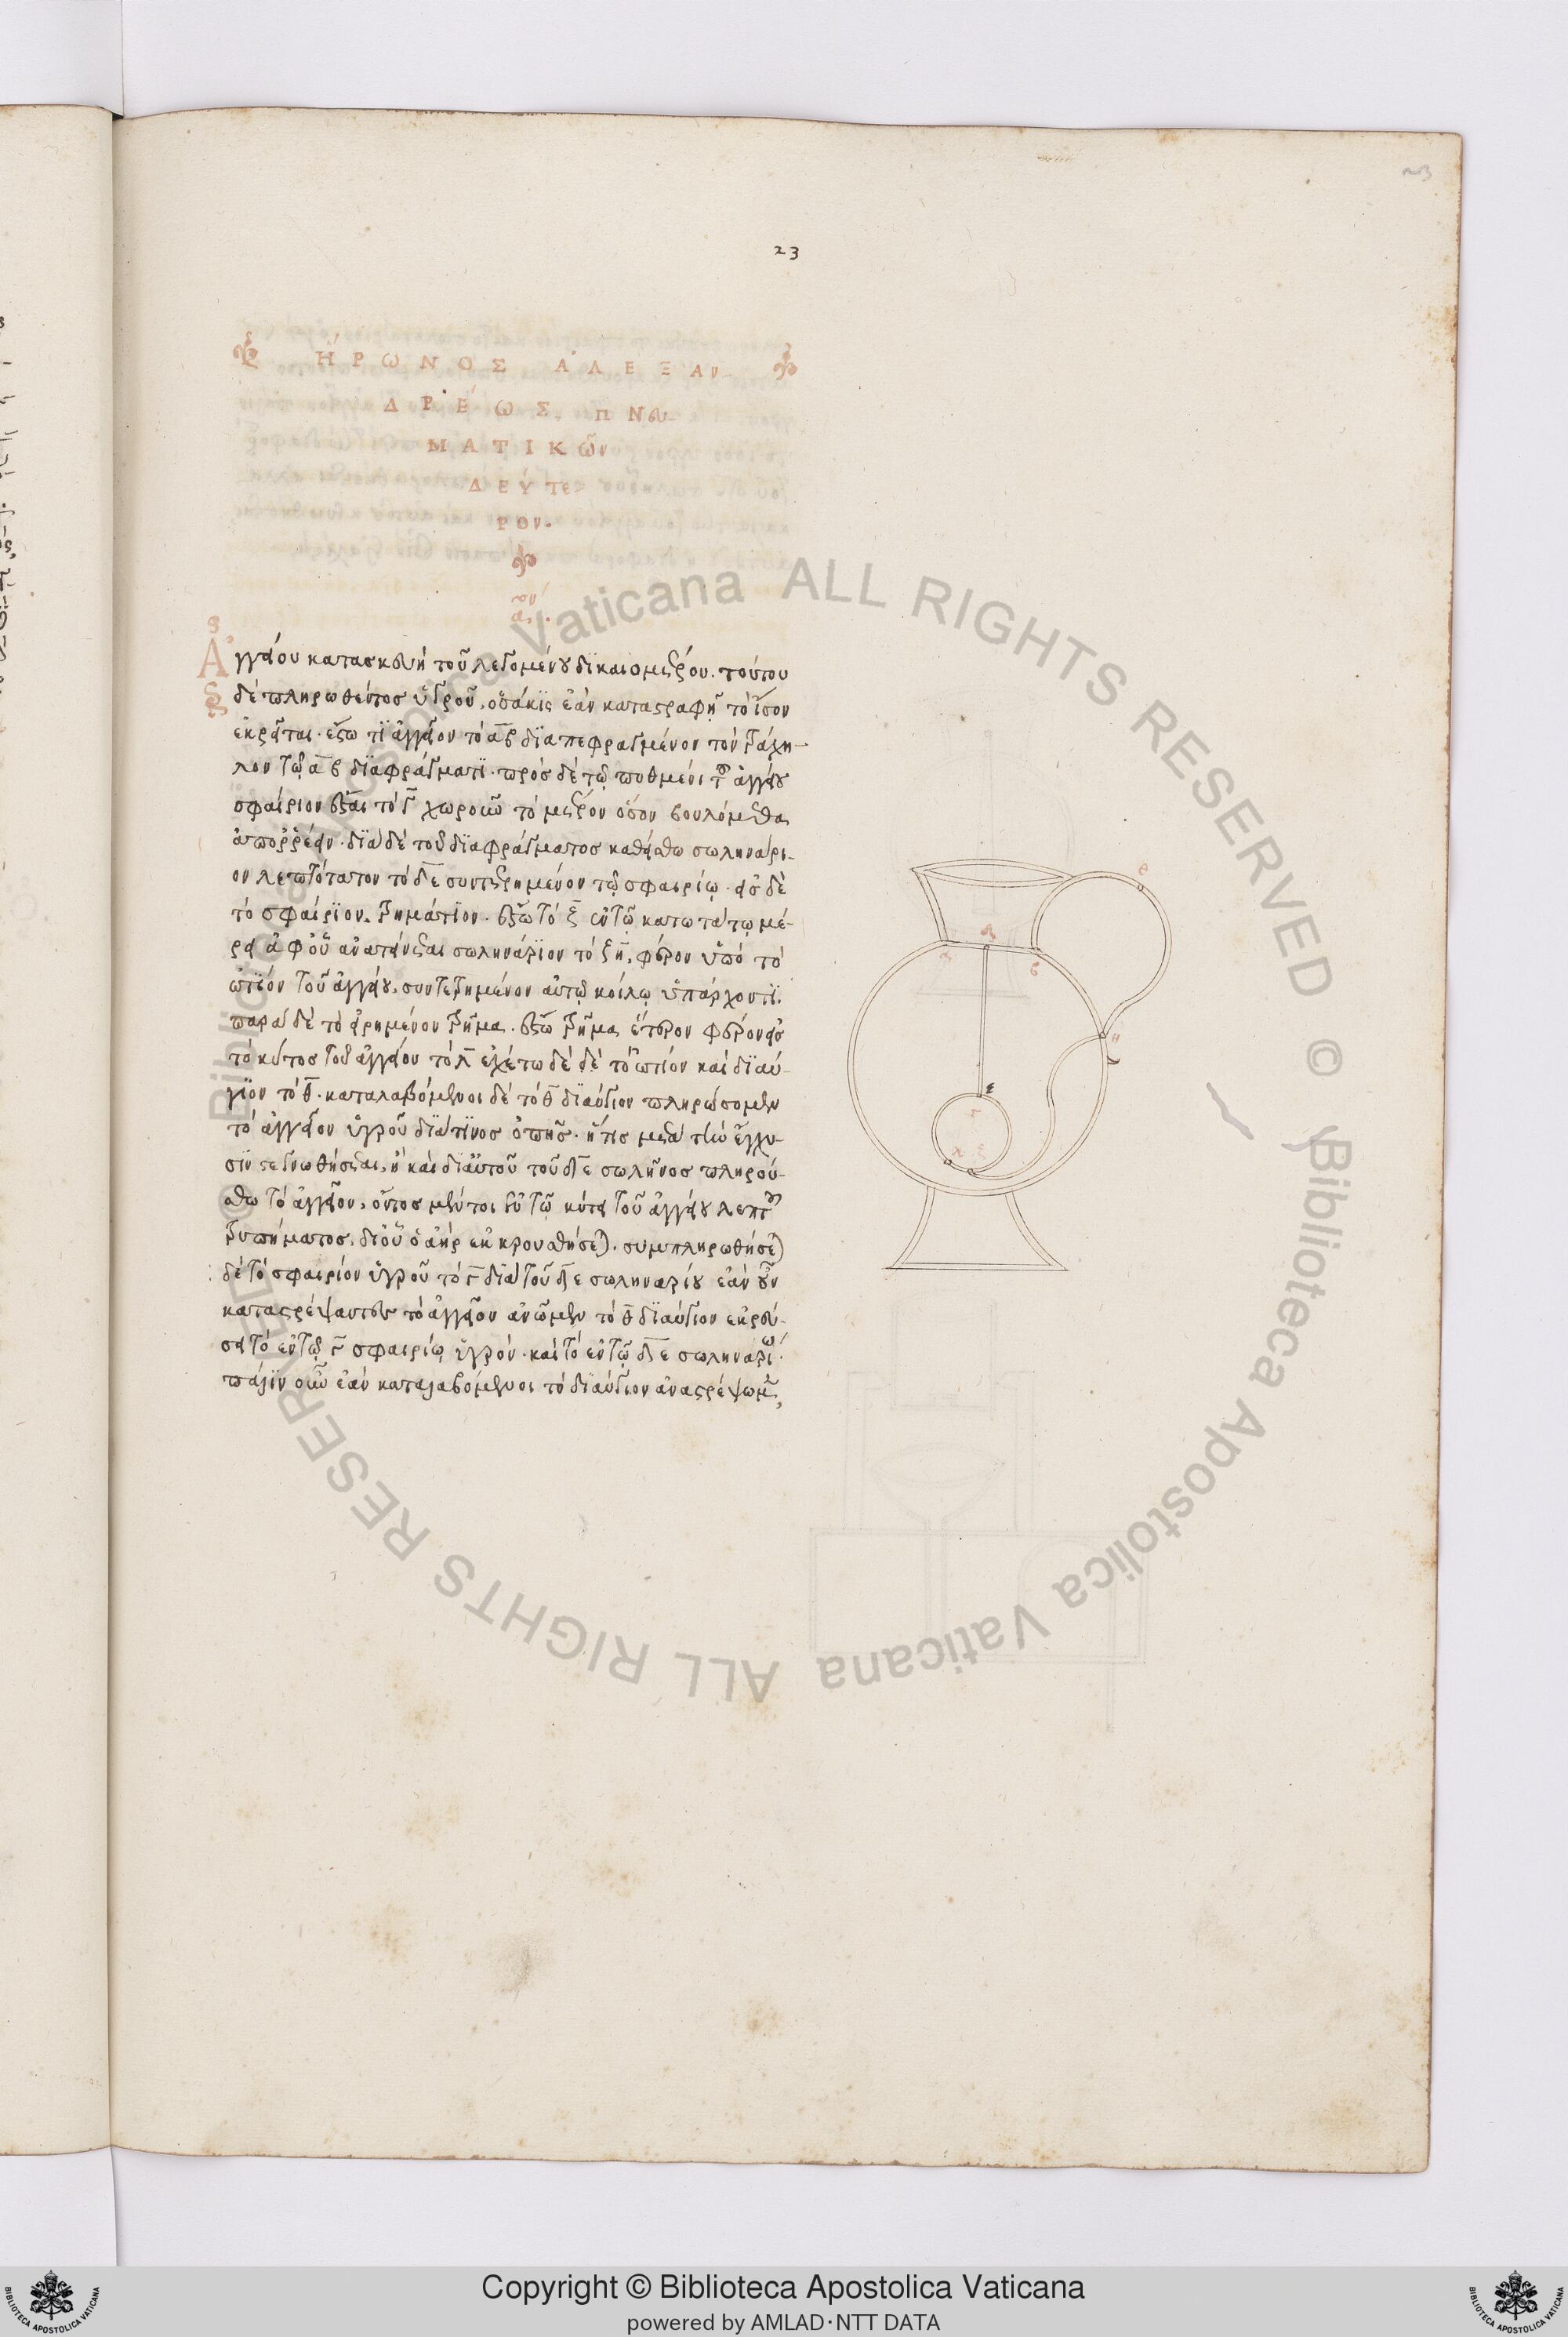 23
ἭΡΩΝΟΣ ἈΛΕΞΑν
ΔΡΈΩΣ ΠΝευ
ΜΑΤΙΚῶν
ΔΕΎΤε
ΡΟν.
Ἀγγείου κατασκευὴ τοῦ λεγομένου δικαιομέτρου. τούτου
δὲ πληρωθέντος ὑγροῦ, ὁσάκις ἐὰν καταστραφῇ τὸ ἴσον
ἐκρεῖται. ἔστω τϊ ἀγγεῖον τὸ αβ διαπεφραγμένον τὸν τράχη-
λον τῷ αβ διαφράγματι. πρὸς δὲ τῷ πυθμένι τοῦ ἀγγείου
σφαίριον ἔσται τὸ γ χωροῦν τὸ μέτρον ὅσον βουλόμεθα
ἀπορρέειν. διὰ δὲ τοῦ διαφράγματος καθείσθω σωληνάρι-
ον λεπτότατον τὸ δε συντετρημένον τῷ σφαιρίῳ. εἰς δὲ
τὸ σφαίριον. τρημάτιον. ἔστω τὸ ξ ἐν τῷ κατωτάτῳ μέ-
ρει ἀφ' οὗ ἀνατείνεται σωληνάριον τὸ ξη, φέρον ὑπὸ τὸ
ὠτίον τοῦ ἀγγείου, συντετρημένον αὐτῷ κοίλῳ ὑπάρχοντι.
παρὰ δὲ τὸ εἰρημένον τρῆμα. ἔστω τρῆμα ἕτερον φέρον εἰς
τὸ κύτος τοῦ ἀγγείου τὸ λ ἐχέτω δὲ δὲ τὸ ὠτίον καὶ διαύ-
γιον τὸ θ. καταλαβόμενοι δὲ τὸ θ διαύγιον πληρώσομεν
τὸ ἀγγεῖον ὑγροῦ διά τινος ὀπῆς. ἥτις μετὰ τὴν ἔγχυ-
σιν στεγνωθήσεται, ἢ καὶ δι αὐτοῦ τοῦ δε σωλῆνος πληρού-
σθω τὸ ἀγγεῖον, ὄντος μέντοι ἐν τῷ κύτει τοῦ ἀγγείου λεπτοῦ
τρυπήματος, δι οὗ ὁ ἀὴρ ἐκκρουσθήσεται. συμπληρωθήσεται
δὲ τὸ σφαιρίον ὑγροῦ τὸ γ διὰ τοῦ δε σωληναρίου ἐὰν οὖν
καταστρέψαντες τὸ ἀγγεῖον ἀνῶμεν τὸ θ διαύγιον ἐκρεύ-
σει τὸ ἐν τῷ γ σφαιρίῳ ὑγρόν. καὶ τὸ ἐν τῷ δε σωληναρίῳ.
πάλιν οὖν ἐὰν καταλαβόμενοι τὸ διαύγιον ἀναστρέψωμεν
θ
δ
α
β
η
ε
γ
λ ξ
© Biblioteca Apostolica Vaticana ALL RIGHTS RESERVED
© Biblioteca Apostolica Vaticana ALL RIGHTS RESERVED
Copyright © Biblioteca Apostolica Vaticana
powered by AMLAD・NTT DATA
BIBLIOTECA APOSTOLICA VATICANA
BIBLIOTECA APOSTOLICA VATICANA